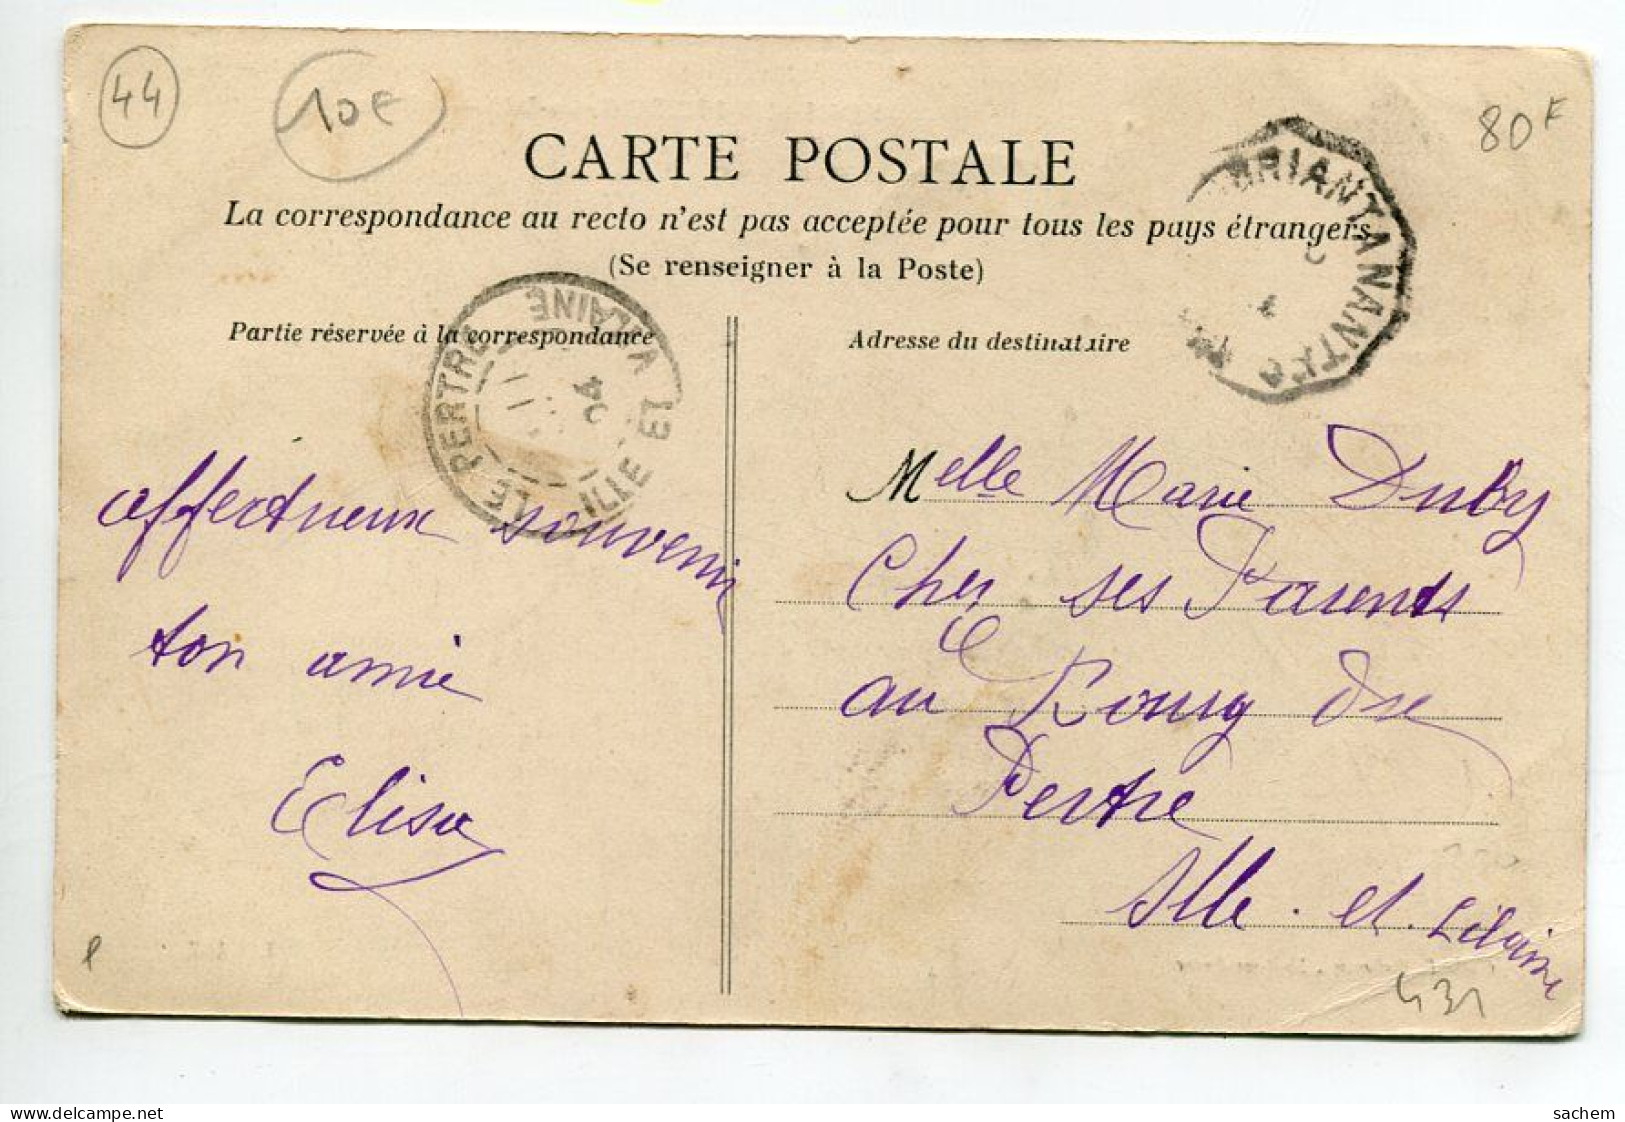 44
10€
80F
CARTE POSTALE
La correspondance au recto n'est pas acceptée pour tous les pays étrangers
(Se renseigner à la Poste)
Partie réservée à la correspondance
Adresse du destinataire
LE PERTRE
ILLE ET VILAINE
BRIANT A NANTES
affectueux souvenir
ton amie
Elisa
Melle Marie Duby
Chez ses Parents
au Bourg du
Pertre
Ille et Vilaine
431
delcampe.net
sachem